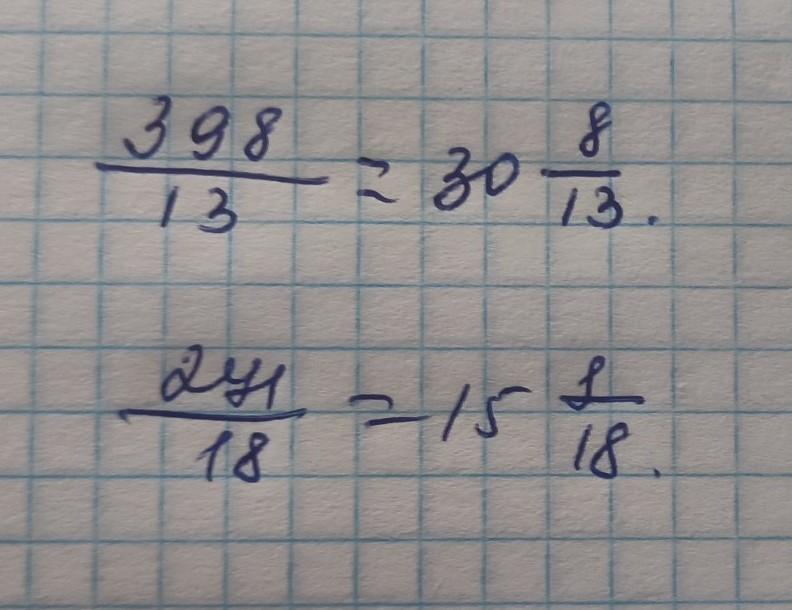 398/13 = 30 8/13.
271/18 = 15 1/18.